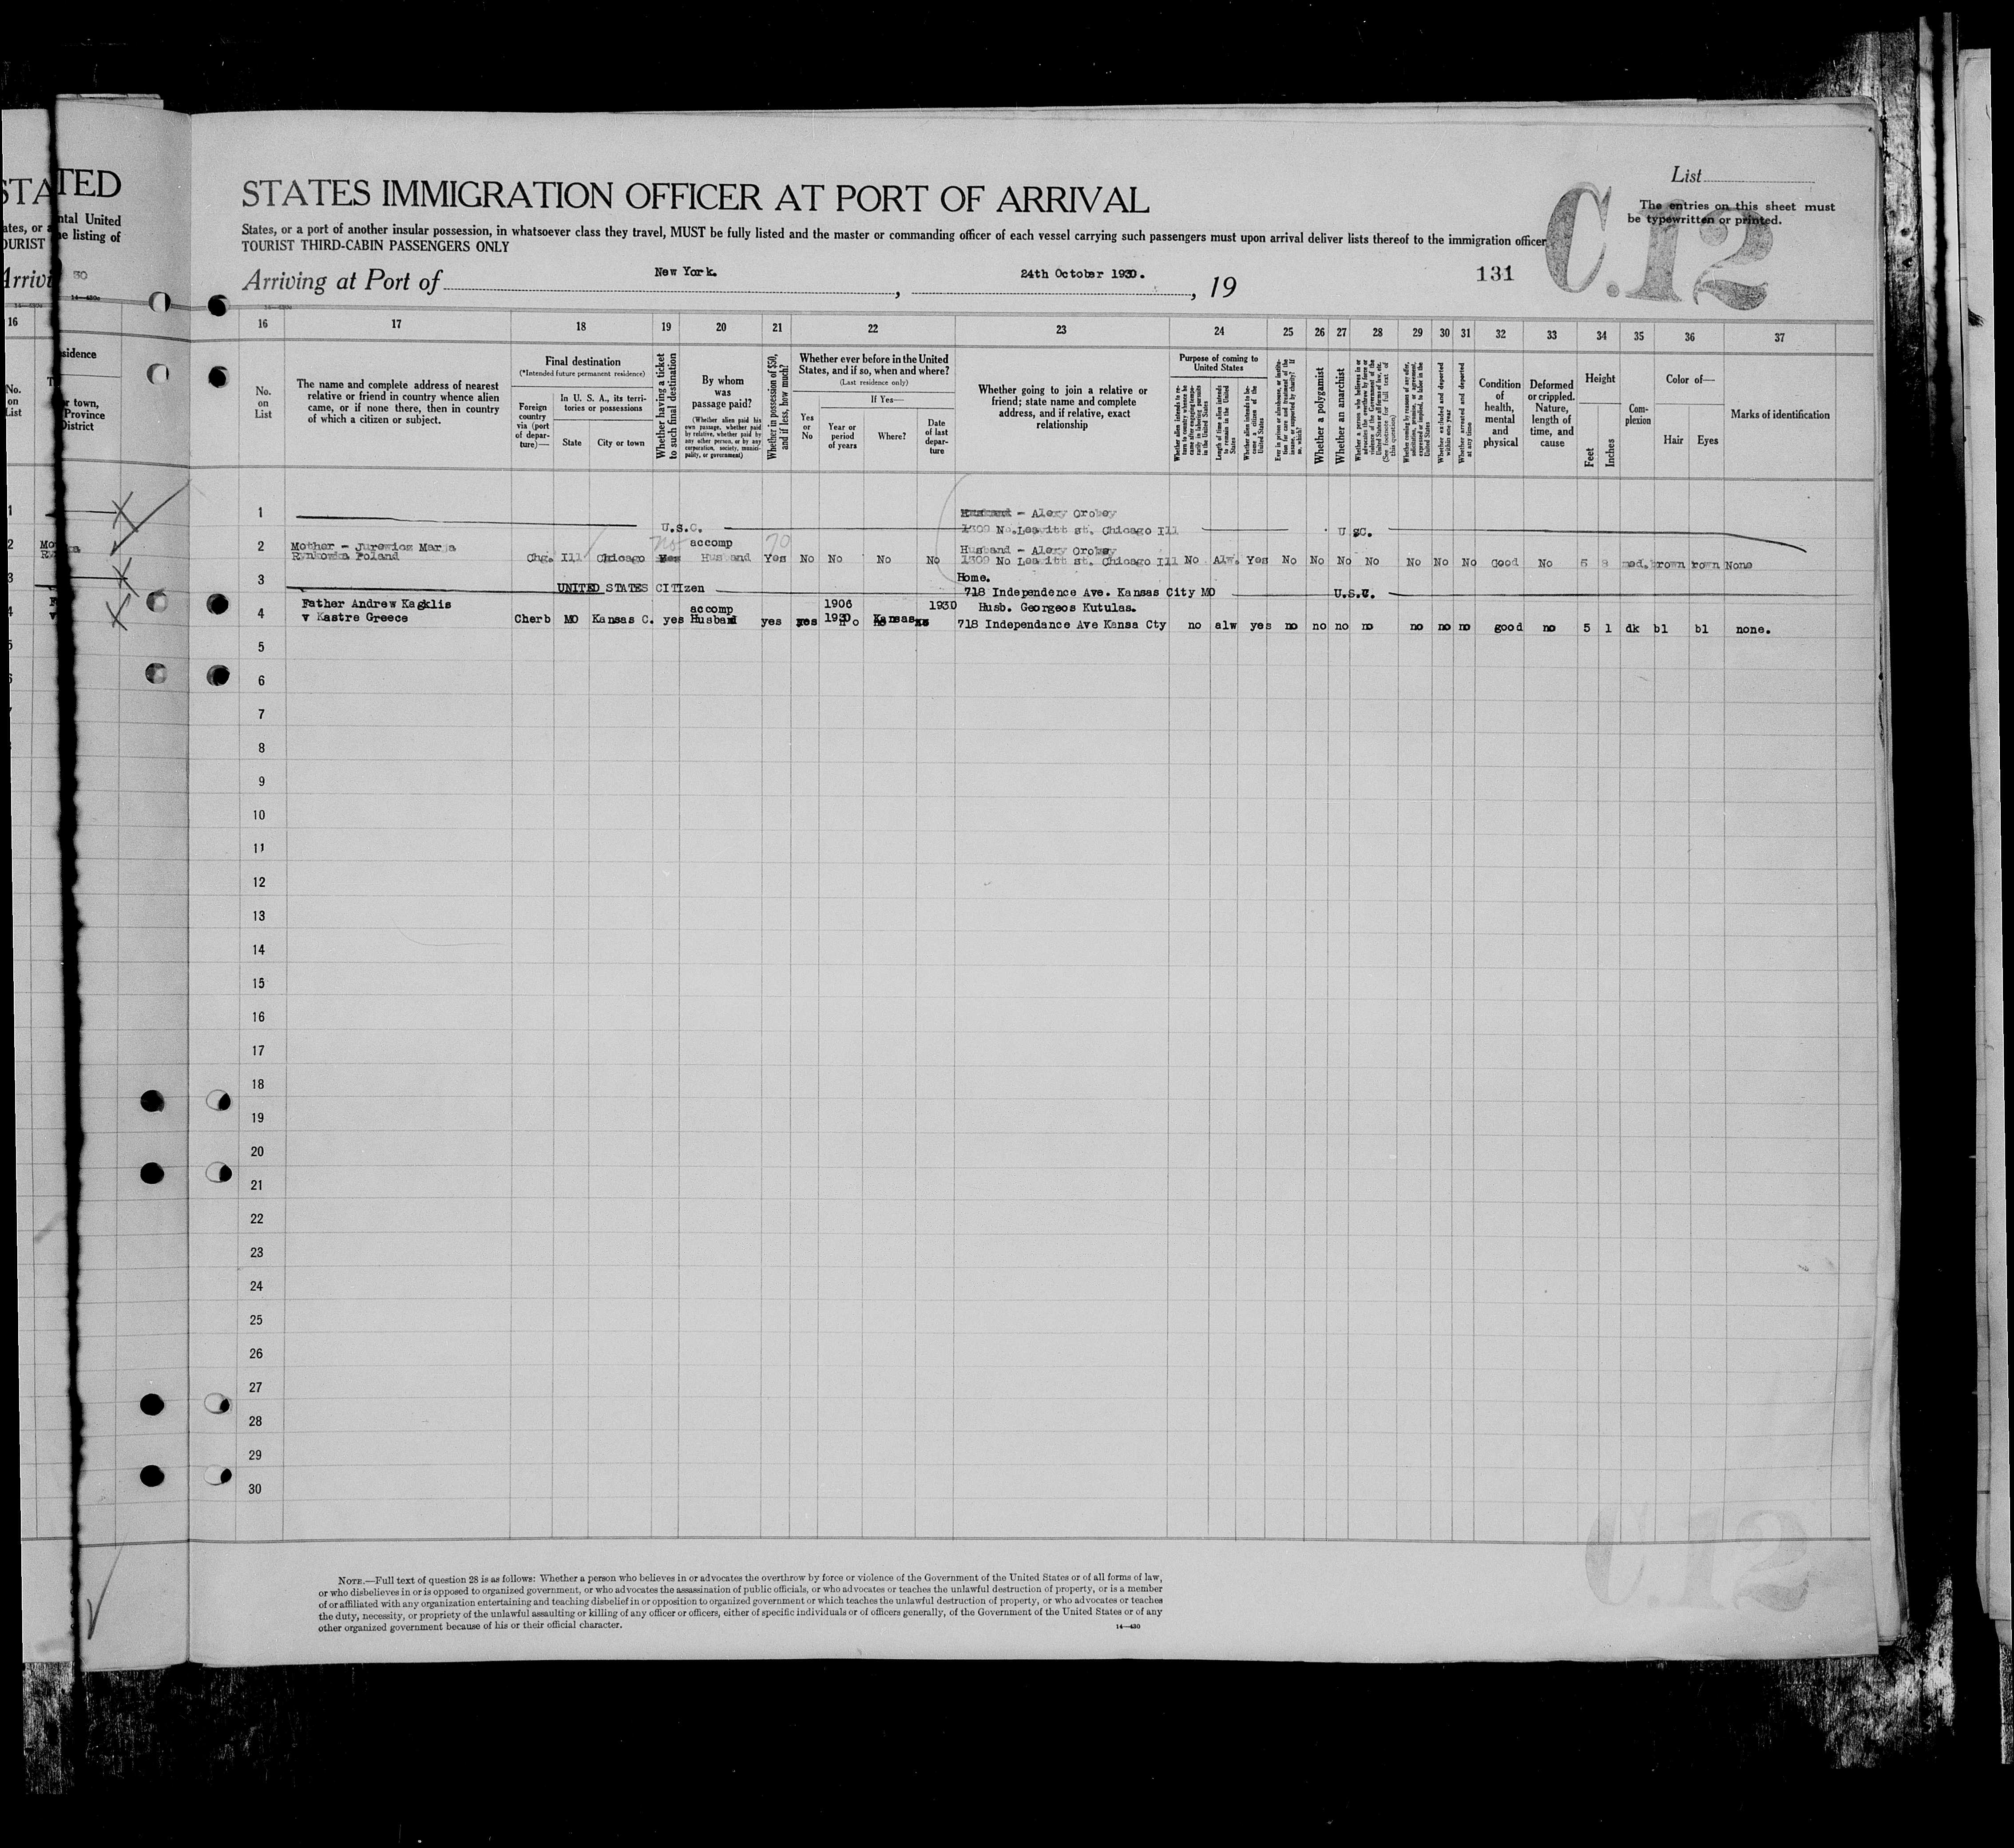 STATES IMMIGRATION OFFICER AT PORT OF ARRIVAL
States, or a port of another insular possession, in whatsoever class they travel, MUST be fully listed and the master or commanding officer of each vessel carrying such passengers must upon arrival deliver lists thereof to the immigration officer
TOURIST THIRD-CABIN PASSENGERS ONLY
List
The entries on this sheet must
be typewritten or printed.
C.12
Arriving at Port of New York. , 24th October 1930. , 19
131
16 17 18 19 20 21 22 23 24 25 26 27 28 29 30 31 32 33 34 35 36 37
No. on List
The name and complete address of nearest
relative or friend in country whence alien
came, or if none there, then in country
of which a citizen or subject.
Final destination
(*Intended future permanent residence)
Foreign country via (port of departure)—
In U. S. A., its territories or possessions
State
City or town
Whether having a ticket to such final destination
By whom was passage paid?
(Whether alien paid his own passage, whether paid by relative, whether paid by any other person, or by any corporation, society, municipality, or government)
Whether in possession of $50, and if less, how much?
Whether ever before in the United
States, and if so, when and where?
(Last residence only)
Yes or No
If Yes—
Year or period of years
Where?
Date of last departure
Whether going to join a relative or
friend; state name and complete
address, and if relative, exact
relationship
Purpose of coming to
United States
Whether alien intends to return to country whence he came after engaging temporarily in laboring pursuits in the United States
Length of time alien intends to remain in the United States
Whether alien intends to become a citizen of the United States
Ever in prison or almshouse, or institution for care and treatment of the insane, or supported by charity? If so, which?
Whether a polygamist
Whether an anarchist
Whether a person who believes in or advocates the overthrow by force or violence of the Government of the United States or all forms of law, etc. (See footnote for full text of this question)
Whether coming by reason of any offer, solicitation, promise, or agreement, expressed or implied, to labor in the United States
Whether excluded and deported within one year
Whether arrested and deported at any time
Condition of health, mental and physical
Deformed or crippled. Nature, length of time, and cause
Height
Feet
Inches
Complexion
Color of—
Hair
Eyes
Marks of identification
1 U.S.C. Husband - Alexy Orobey
1309 No.Leavitt st. Chicago Ill U SC.
2 Mother - Jurewicz Marja accomp Husband - Alexy Orobey
Rynkowka Poland Chg. Ill Chicago no Yes Husband 70 Yes No No No No 1309 No Leavitt st. Chicago Ill No Alw. Yes No No No No No No No Good No 5 8 med. brown rown None
3 UNITED STATES CITIzen Home.
718 Independence Ave. Kansas City MO U.S.C.
4 Father Andrew Kagklis accomp 1906 1930 Husb. Georgeos Kutulas.
v Kastre Greece Cherb MO Kansas C. yes Husband yes yes 1930 no Kansas 718 Independance Ave Kansa Cty no alw yes no no no no no no no good no 5 1 dk bl bl none.
5
6
7
8
9
10
11
12
13
14
15
16
17
18
19
20
21
22
23
24
25
26
27
28
29
30
C.12
NOTE.—Full text of question 28 is as follows: Whether a person who believes in or advocates the overthrow by force or violence of the Government of the United States or of all forms of law,
or who disbelieves in or is opposed to organized government, or who advocates the assassination of public officials, or who advocates or teaches the unlawful destruction of property, or is a member
of or affiliated with any organization entertaining and teaching disbelief in or opposition to organized government or which teaches the unlawful destruction of property, or who advocates or teaches
the duty, necessity, or propriety of the unlawful assaulting or killing of any officer or officers, either of specific individuals or of officers generally, of the Government of the United States or of any
other organized government because of his or their official character.
14—430